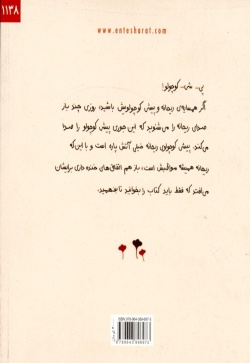 ۱۱۳۸
www.entesharat.com
پی... شی... کوچولو!
اگر همسایه‌ی ریحانه و پیش کوچولویش باشید، روزی چند بار
صدای ریحانه را می‌شنوید که این جوری پیش کوچولو را صدا
می‌کند. پیش کوچولوی ریحانه خیلی آتش پاره است و با این‌که
ریحانه همیشه مواظبش است، باز هم اتفاق‌های خنده داری برایشان
می‌افتد که فقط باید کتاب را بخوانید تا بفهمید.